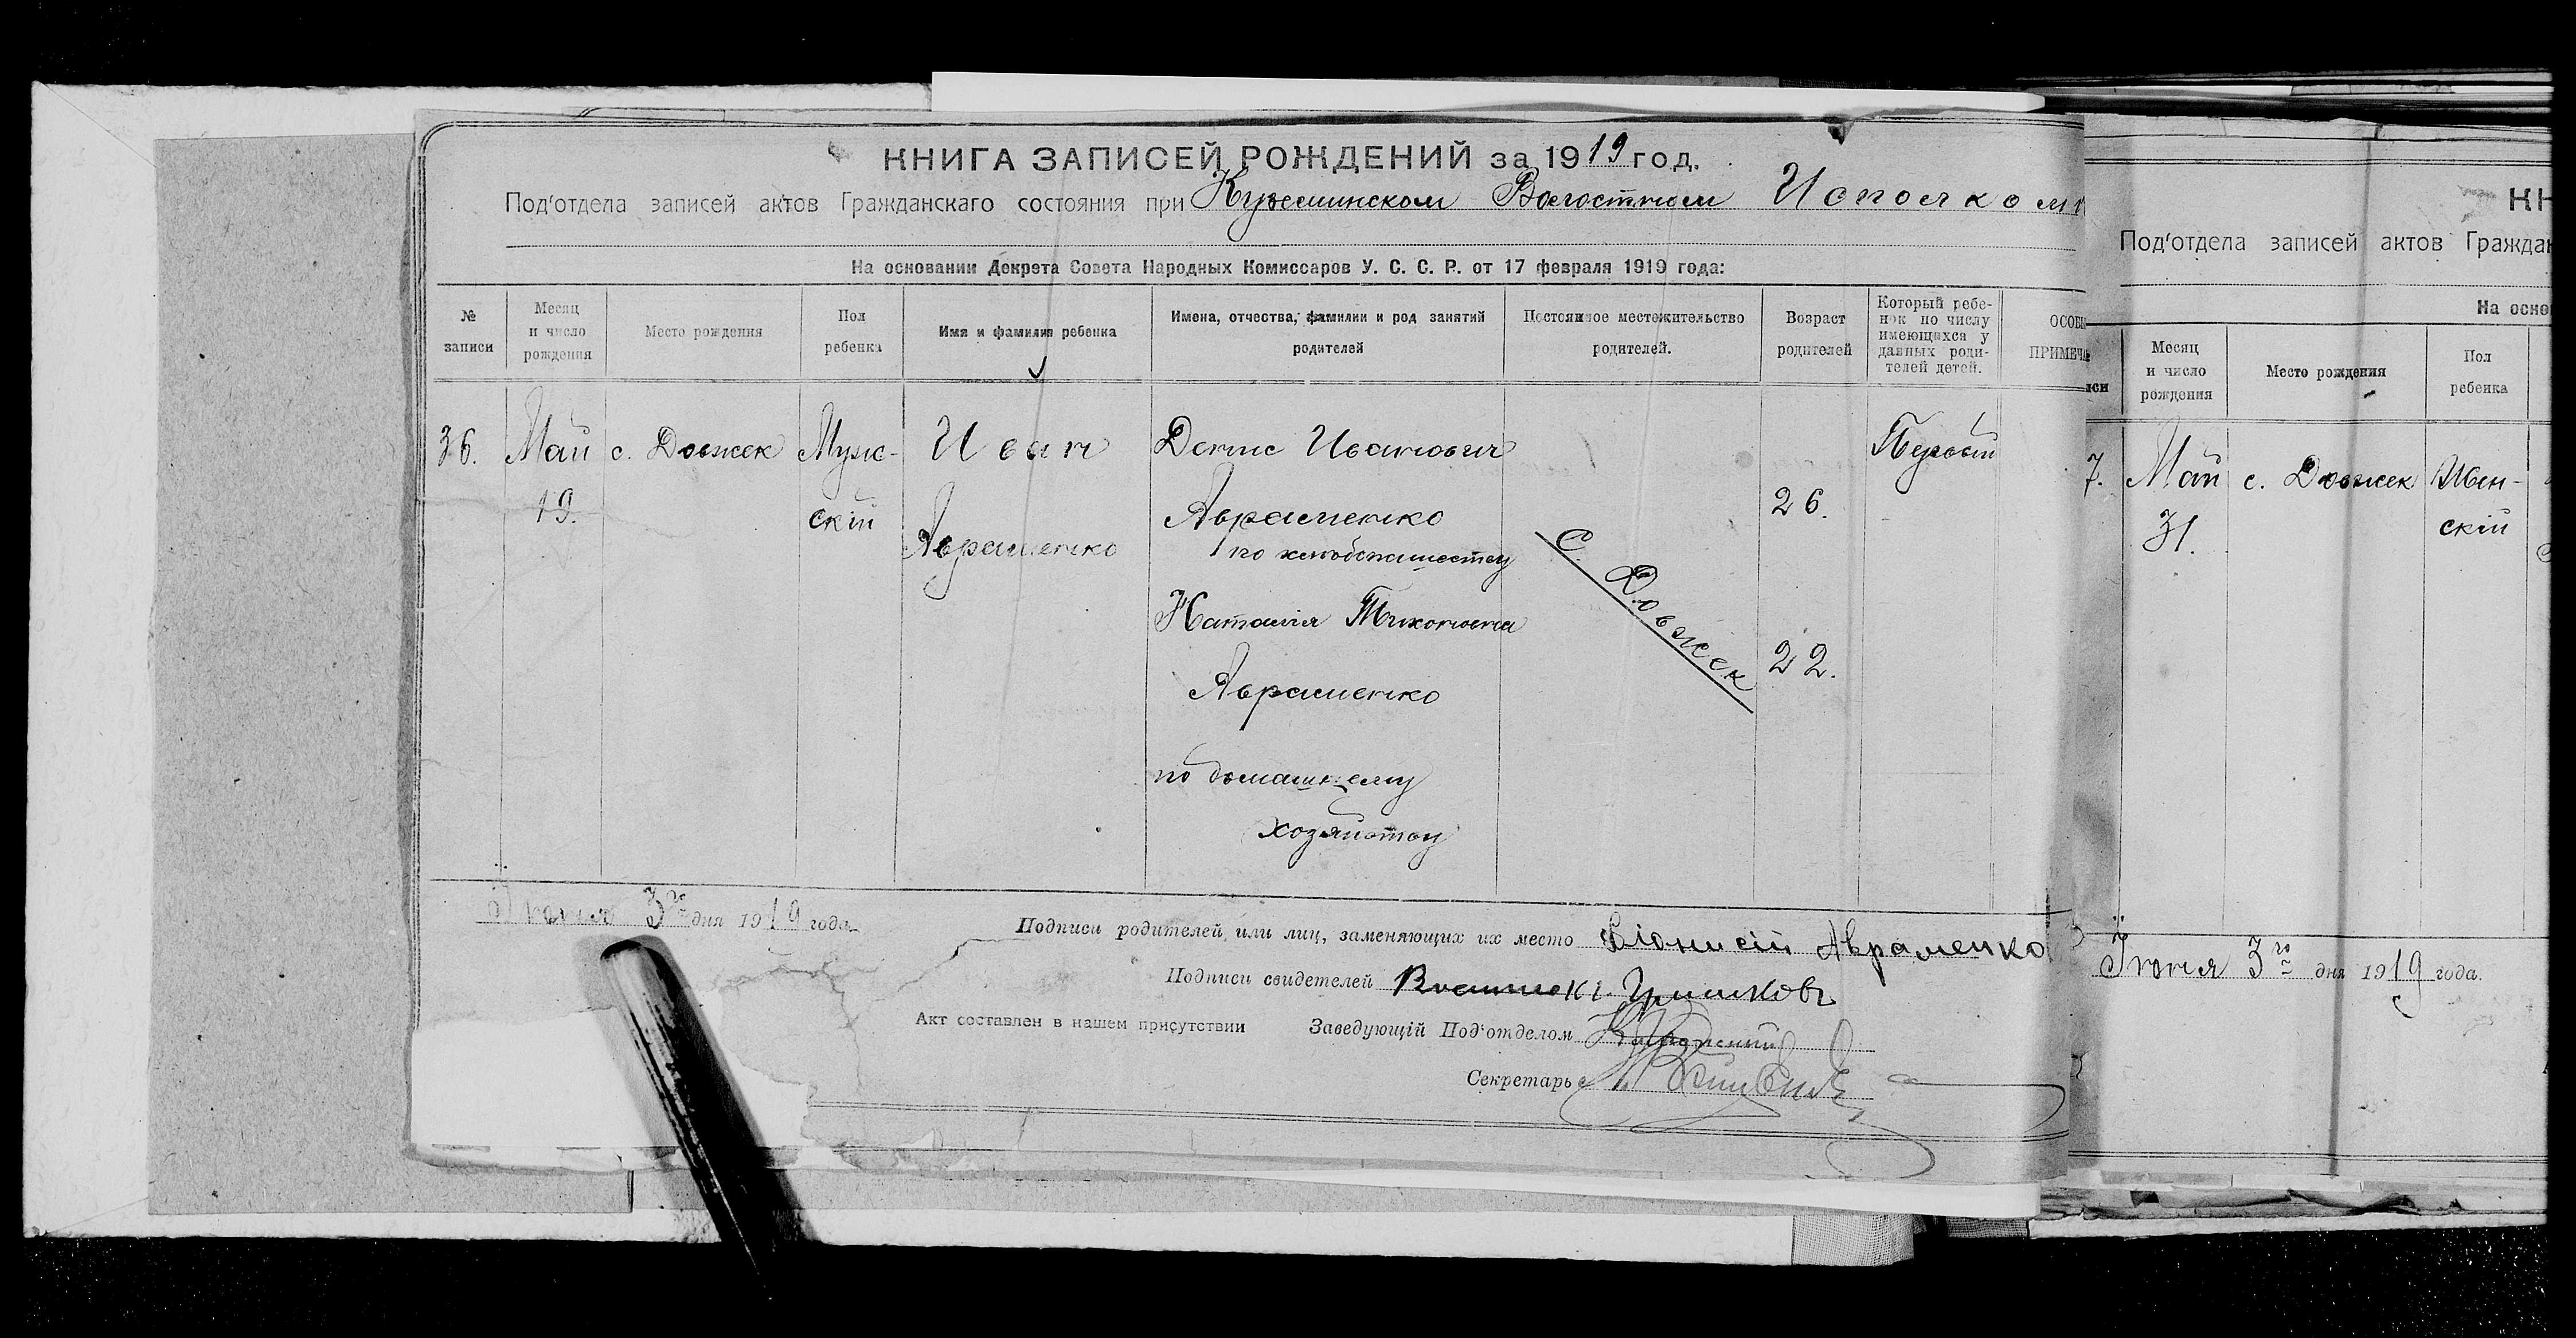 КНИГА ЗАПИСЕЙ РОЖДЕНИЙ за 1919 год.
Под'отдела записей актов Гражданскаго состояния при Волостном Исполкоме
На основании Декрета Совета Народных Комиссаров У. С. С. Р. от 17 февраля 1919 года:
№ записи
Месяц и число рождения
Место рождения
Пол ребенка
Имя и фамилия ребенка
Имена, отчества, фамилии и род занятий родителей
Постоянное местожительство родителей.
Возраст родителей
Который ребенок по числу имеющихся у данных родителей детей.
ОСОБЫ
ПРИМЕЧА
36.
Май
19.
с. Довжек
Муж-
скій
Иван
Авраменко
Денис Иванович
Авраменко
по хлебопашеству
Наталія Тихоновна
Авраменко
по домашнему
хозяйству
с. Довжек
26.
22.
Первый
Іюня 3го дня 1919 года.
Подписи родителей или лиц, заменяющих их место Діонисій Авраменко
Подписи свидетелей
Акт составлен в нашем присутствии Заведующій Под'отделом
Секретарь
КН
Под'отдела записей актов Граждан
На осно
иси
Месяц и число рождения
Место рождения
Пол ребенка
7.
Май
31.
с. Довжек
Жен-
скій
Іюня 3го дня 1919 года.